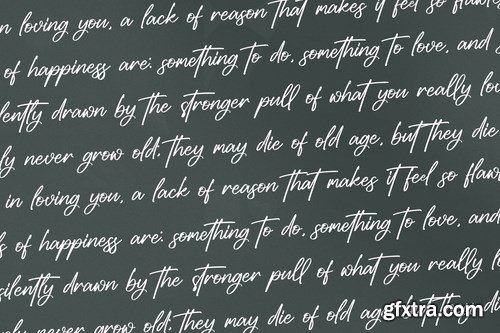 in loving you, a lack of reason that makes it feel so
of happiness are: something to do, something to love, and
silently drawn by the stronger pull of what you really
never grow old; they may die of old age, but they die
in loving you, a lack of reason that makes it feel so
of happiness are: something to do, something to love, and
silently drawn by the stronger pull of what you really
never grow old; they may die of old age but they
gfxtra.com